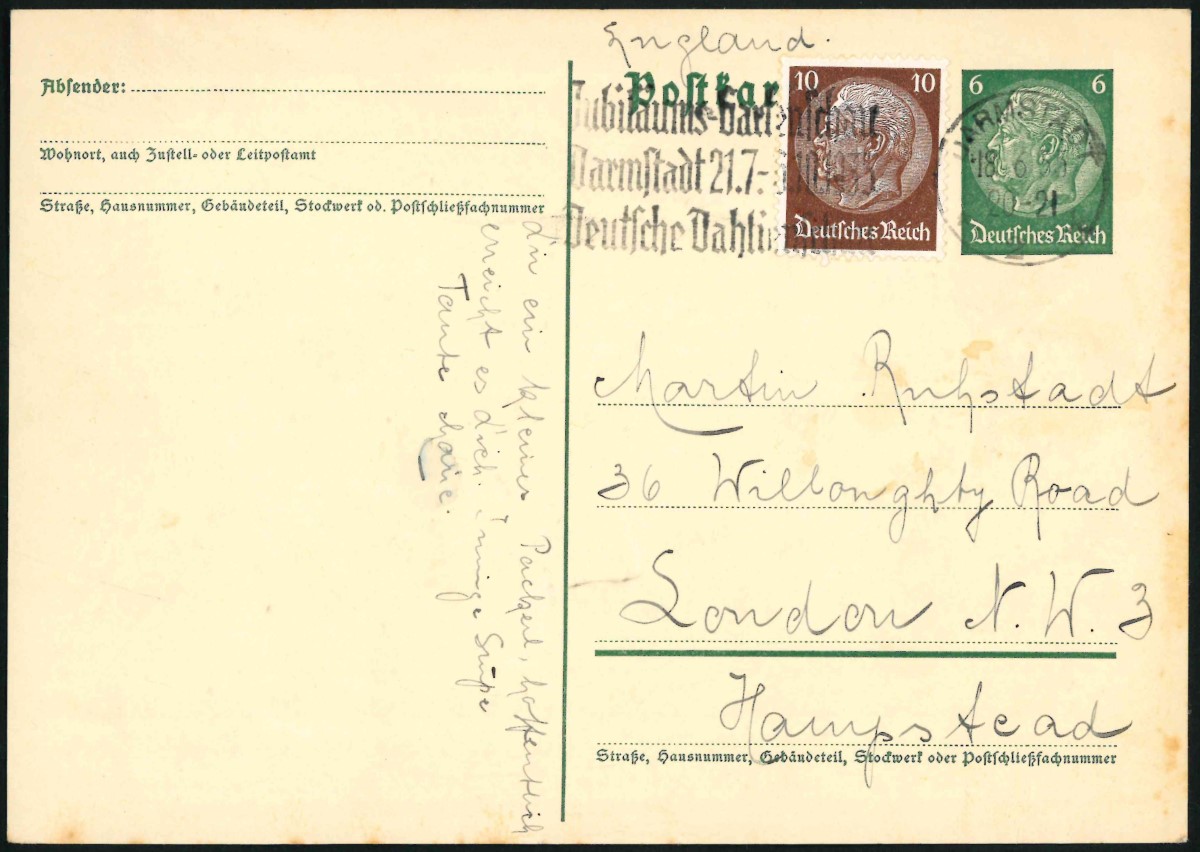 England.
Postkar
Absender:
Wohnort, auch Zustell- oder Leitpostamt
Straße, Hausnummer, Gebäudeteil, Stockwerk od. Postschließfachnummer
Jubiläums-Gartenschau
Darmstadt 21.7.-
Deutsche Dahlien
10 10
Deutsches Reich
6 6
Deutsches Reich
DARMSTADT
18. 6
-21
2
dir ein kleines Packerl, hoffentlich
erreicht es dich. Innige Grüße
Tante Marie.
Martin Ruhstadt
36 Willoughty Road
London N. W. 3
Hampstead
Straße, Hausnummer, Gebäudeteil, Stockwerk oder Postschließfachnummer